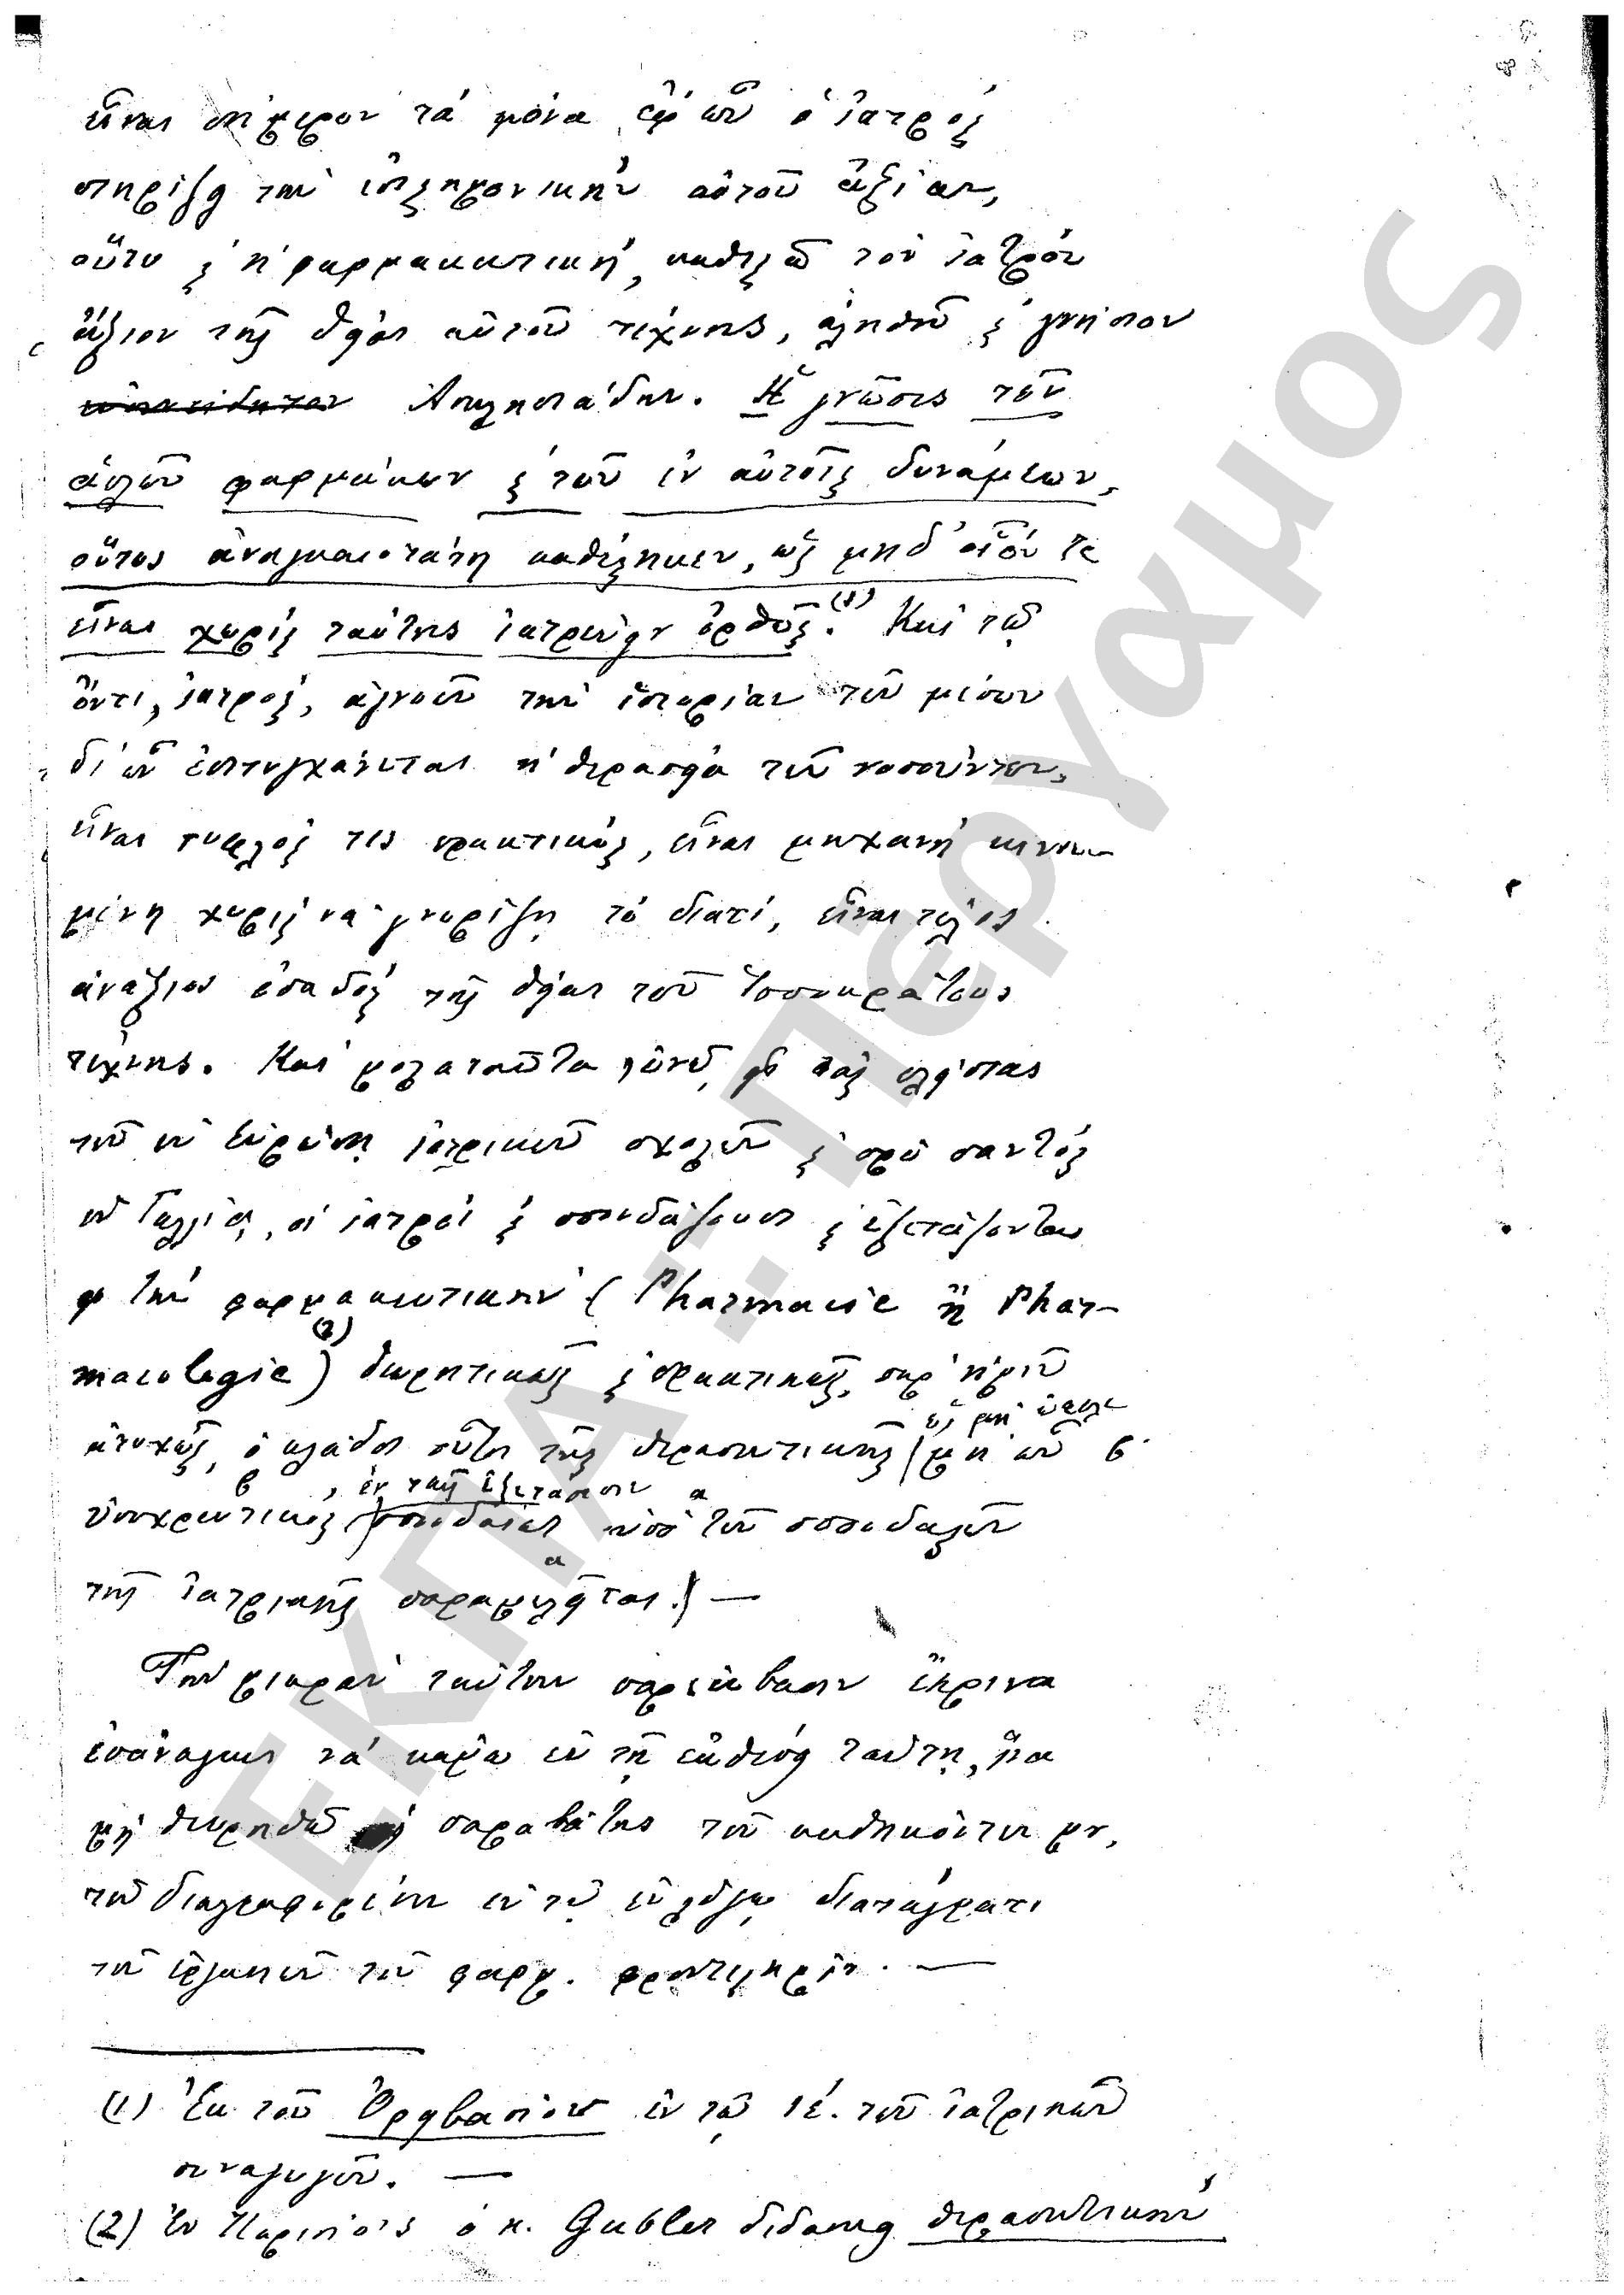 εἶναι σήμερον τὰ μόνα ἐφ' ὧν ὁ ἰατρὸς
στηρίζει τὴν ἐπιστημονικὴν αὐτοῦ ἀξίαν,
οὕτω καὶ ἡ φαρμακευτικὴ, καθιστᾷ τὸν ἰατρὸν
ἄξιον τῆς θείας αὐτοῦ τέχνης, ἀληθῆ καὶ γνήσιον
Ἀσκληπιάδην. Ἡ γνῶσις τῶν
ἁπλῶν φαρμάκων καὶ τῶν ἐν αὐτοῖς δυνάμεων,
οὕτως ἀναγκαιοτάτη καθέστηκεν, ὡς μηδ' οἷόν τε
εἶναι χωρὶς ταύτης ἰατρεύειν ὀρθῶς.(1) Καὶ τῷ
ὄντι, ἰατρὸς, ἀγνοῶν τὴν ἱστορίαν τῶν μέσων
δι' ὧν ἐπιτυγχάνεται ἡ θεραπεία τῶν νοσούντων,
εἶναι τυφλός τις πρακτικὸς, εἶναι μηχανὴ κινου-
μένη χωρὶς νὰ γνωρίζῃ τὸ διατί, εἶναι τέλος
ἀνάξιος ὀπαδὸς τῆς θείας τοῦ Ἱπποκράτους
τέχνης. Καὶ μολαταῦτα ἐν ταῖς πλείσταις
τῶν ἐν Εὐρώπῃ ἰατρικῶν σχολῶν καὶ πρὸ παντὸς
ἐν Γαλλίᾳ, οἱ ἰατροὶ καὶ σπουδάζουσι καὶ ἐξετάζονται
εἰς τὴν φαρμακευτικὴν (Pharmacie ἢ Phar-
macologie)(2) θεωρητικῶς καὶ πρακτικῶς, παρ' ἡμῖν
ἀτυχῶς, ὁ κλάδος οὗτος τῆς θεραπευτικῆς μὴ ὢν
ὡς μὴ
ὑποχρεωτικὸς ἐν ταῖς ἐξετάσεσιν ὑπὸ τῶν σπουδαστῶν
τῆς ἰατρικῆς παραμελεῖται. —
Τὴν μικρὰν ταύτην παρέκβασιν ἔκρινα
ἐπάναγκες νὰ κάμω ἐν τῇ ἐκθέσει ταύτῃ, ἵνα
μὴ θεωρηθῶ παραβάτης τῶν καθηκόντων μου,
τῶν διαγραφομένων ἐν τῷ ἐν λόγῳ διατάγματι
τῶν ὀργανισμῶν τοῦ φαρμ. φροντιστηρίου. —
(1) Ἐκ τοῦ Ὀρειβασίου ἐν τῷ ιέ. τῶν ἰατρικῶν
συναγωγῶν. —
(2) Ἐν Παρισίοις ὁ κ. Gubler διδάσκει θεραπευτικὴν
ΕΚΠΑ - Πέργαμος